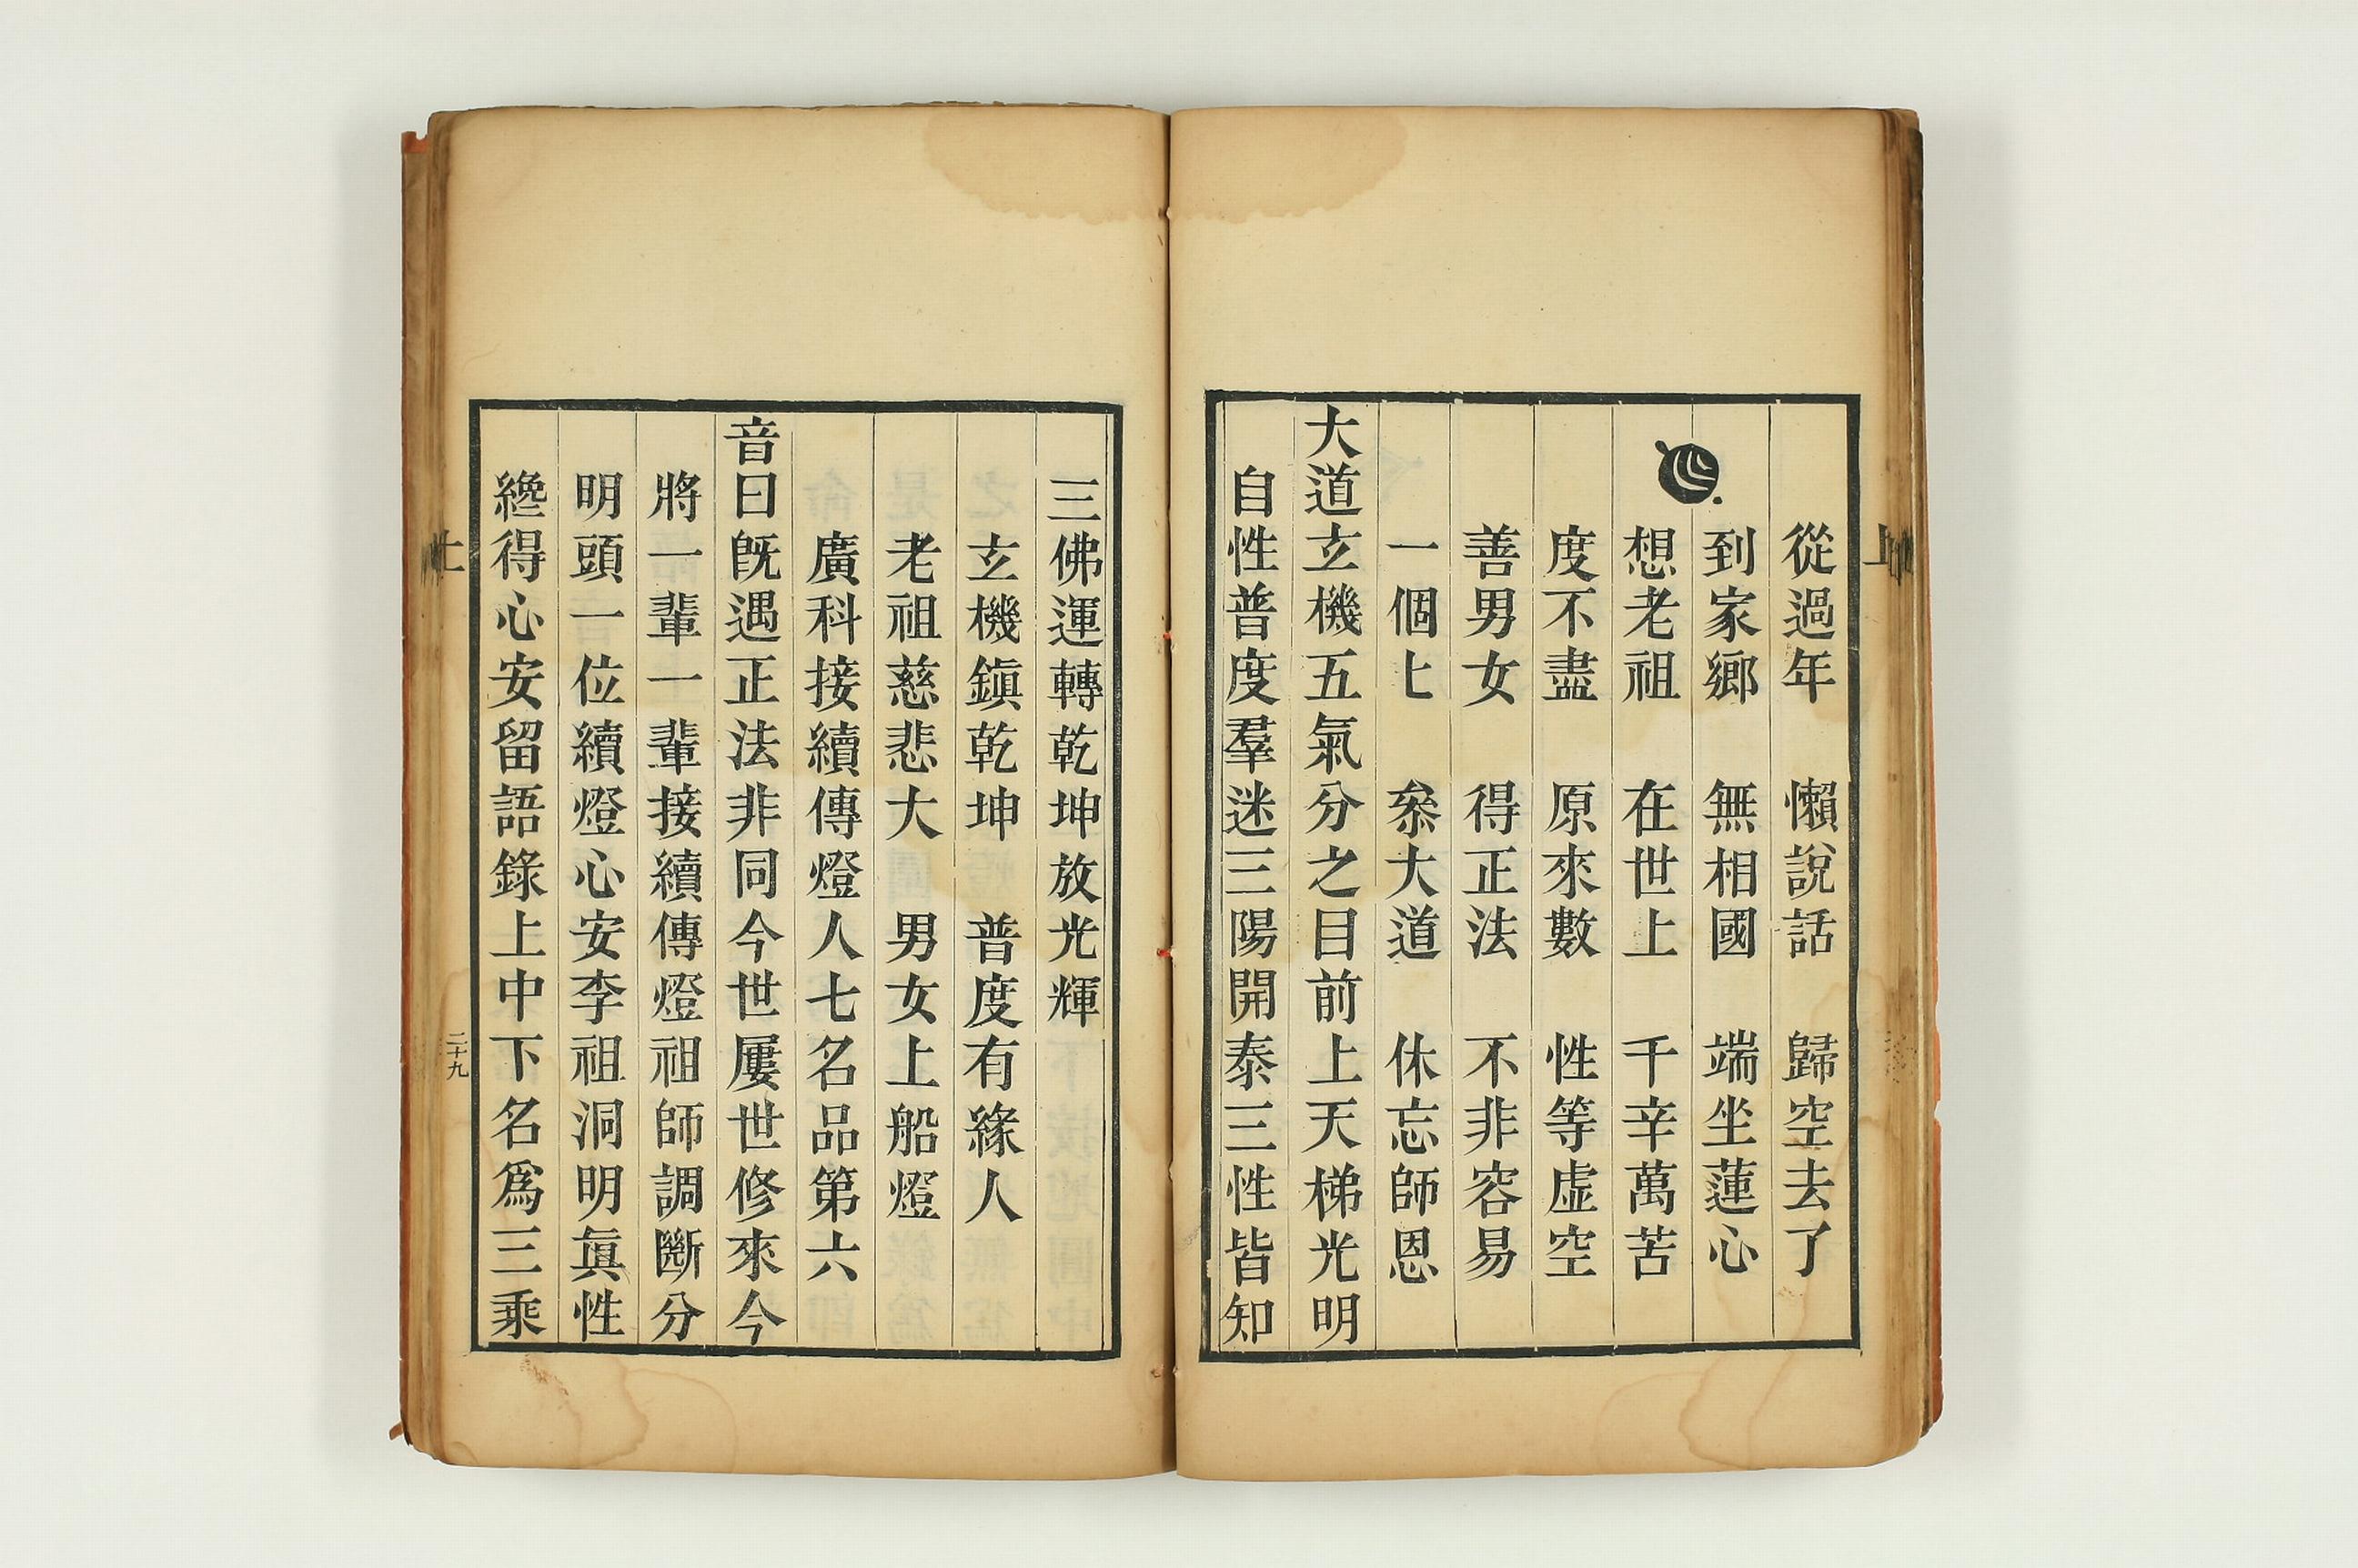 從過年　懶說話　歸空去了
到家鄉　無相國　端坐蓮心
想老祖　在世上　千辛萬苦
度不盡　原來數　性等虛空
善男女　得正法　不非容易
一個上　叅大道　休忘師恩
大道玄機五氣分之目前上天梯光明
自性普度羣迷三陽開泰三性皆知
三佛運轉乾坤放光輝
玄機鎮乾坤　普度有緣人
老祖慈悲大　男女上船燈
廣科接續傳燈人七名品第六
音曰旣遇正法非同今世屢世修來今
將一輩一輩接續傳燈祖師調斷分
明頭一位續燈心安李祖洞明眞性
纔得心安留語錄上中下名爲三乘
二十九